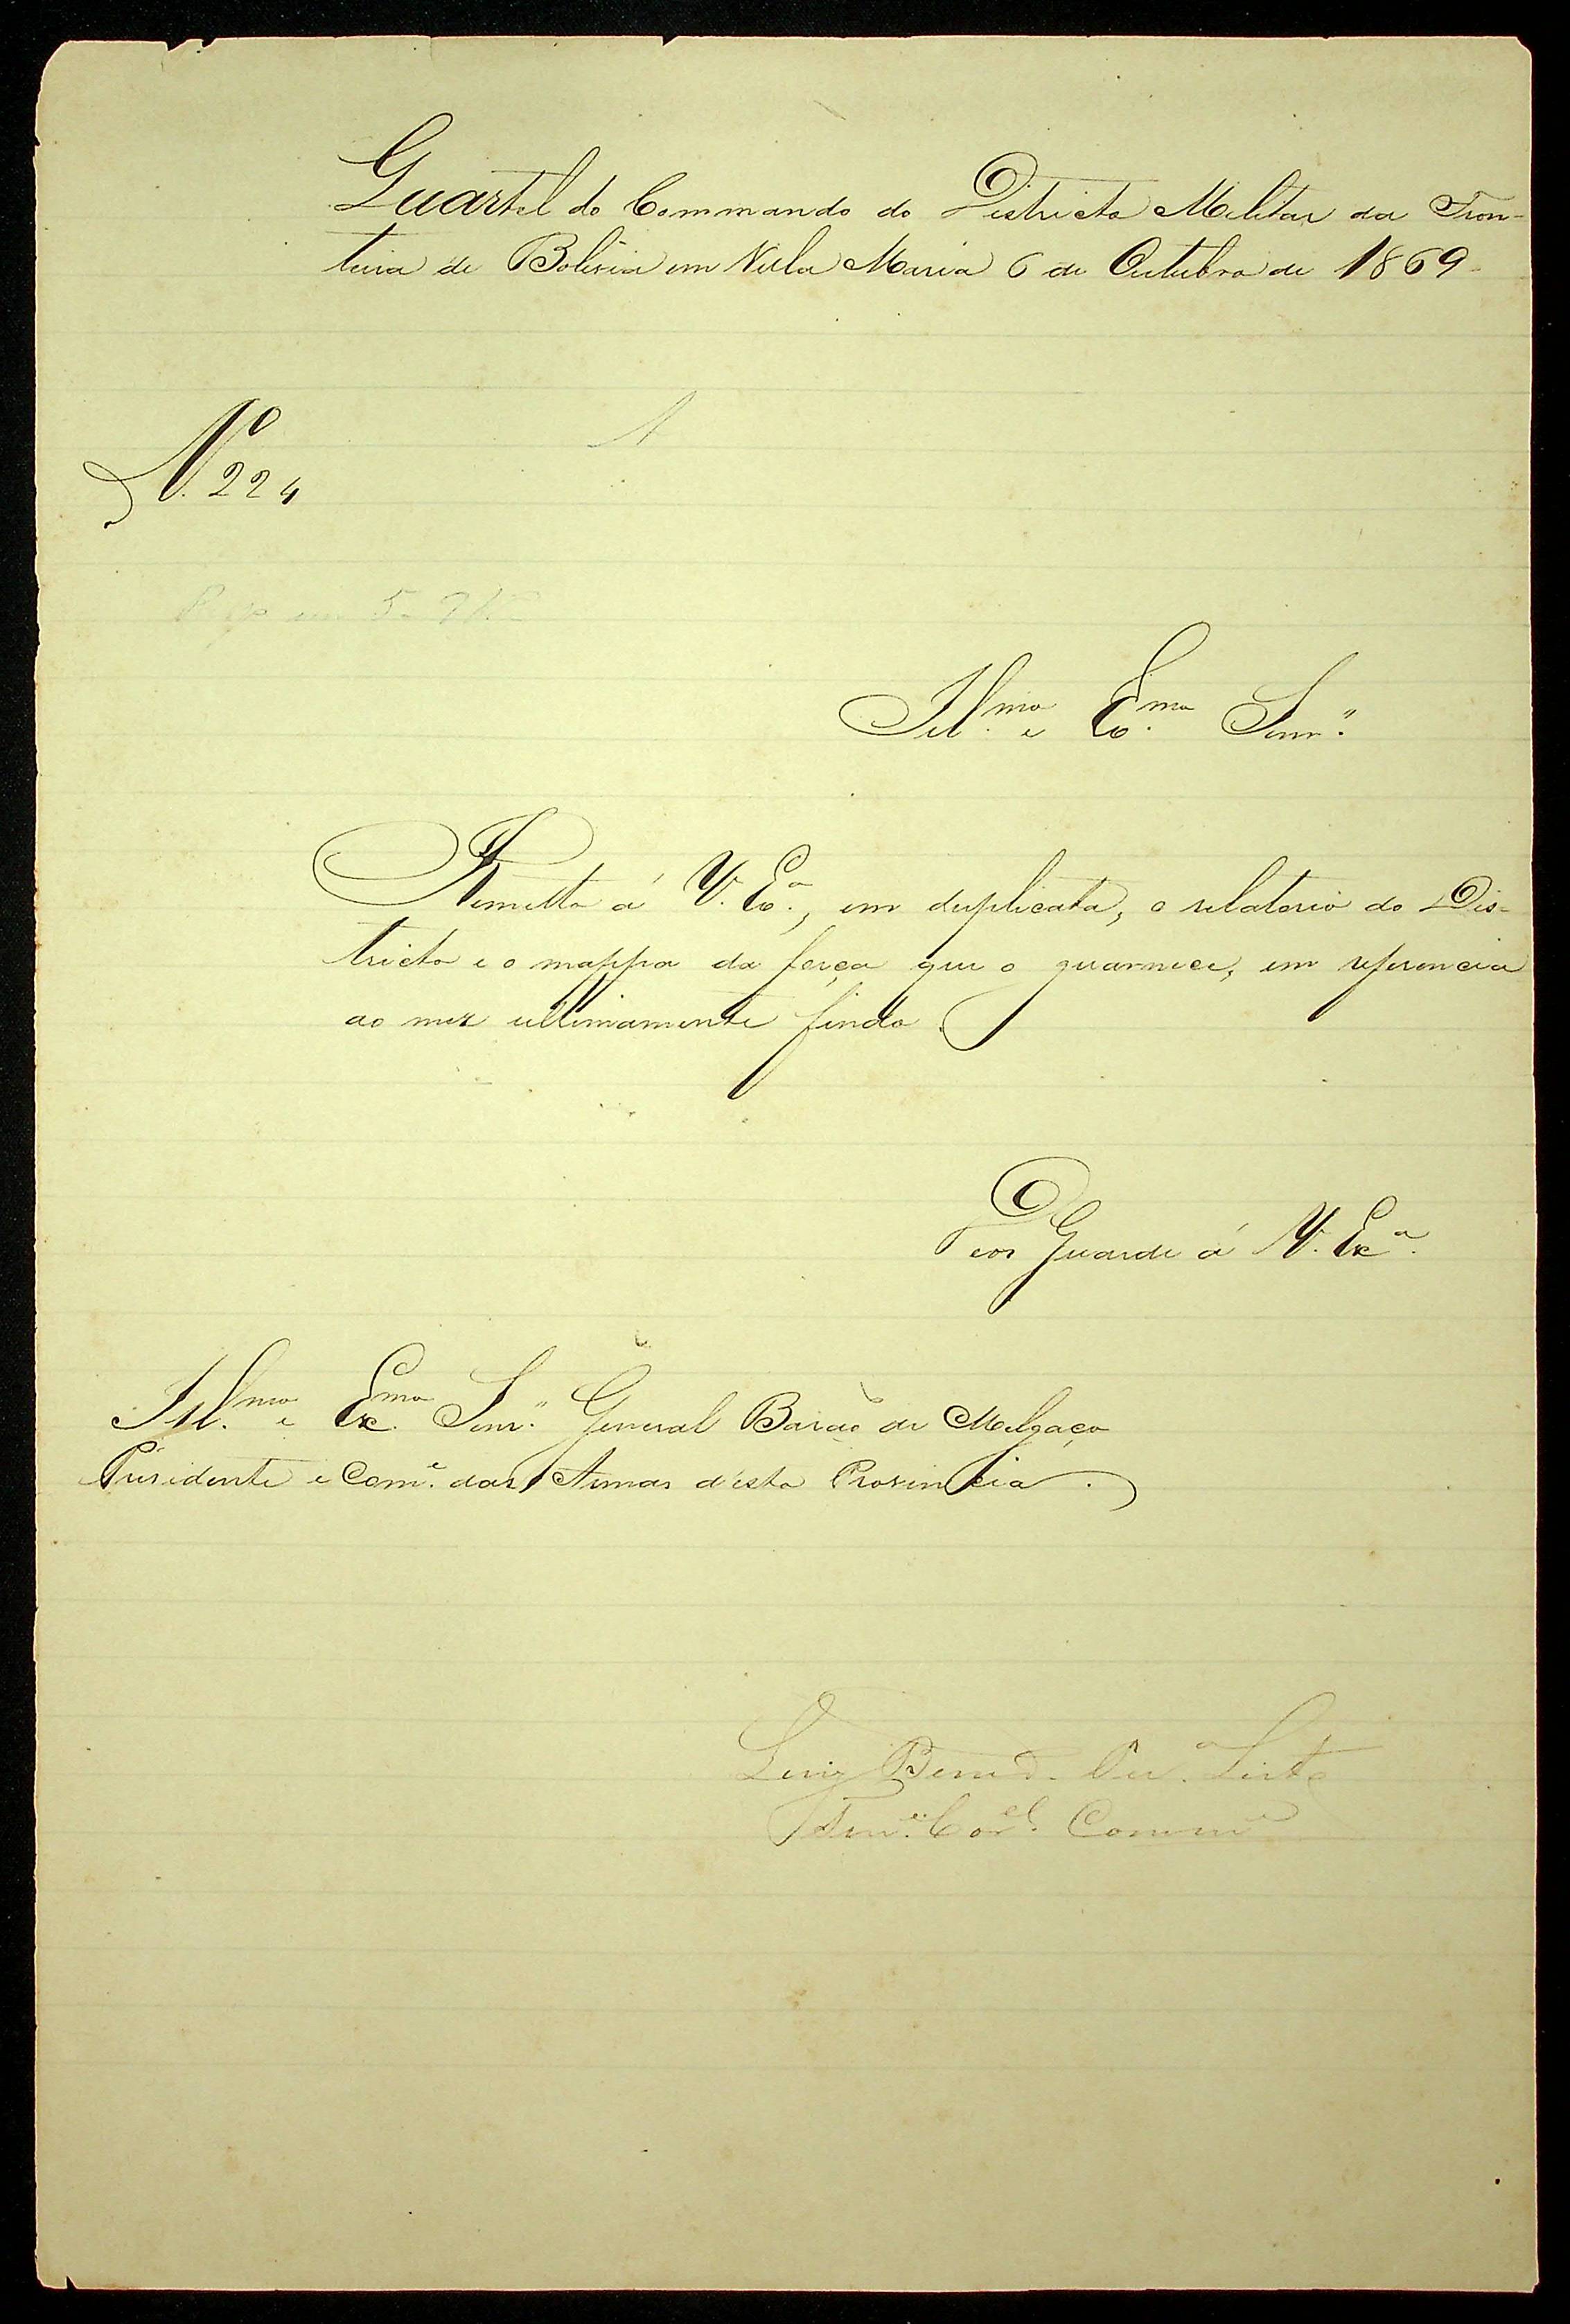 Quartel do Commando do Districto Militar da Fron-
teira de Bolivia em Villa Maria 6 de Outubro de 1869
Nº. 224
Ill.mo e Ex.mo Senr.
Remetto á V. Ex.a, em duplicata, o relatorio do Dis-
tricto e o mappa da força que o guarnece, em referencia
ao mez ultimamente findo.
Deos Guarde á V. Ex.a
Ill.mo e Ex.mo Senr. General Barão de Melgaço
Presidente e Com.e das Armas d'esta Provincia.
Luiz Bened. Per.a Leite
Ten.e Cor.el Comm.e